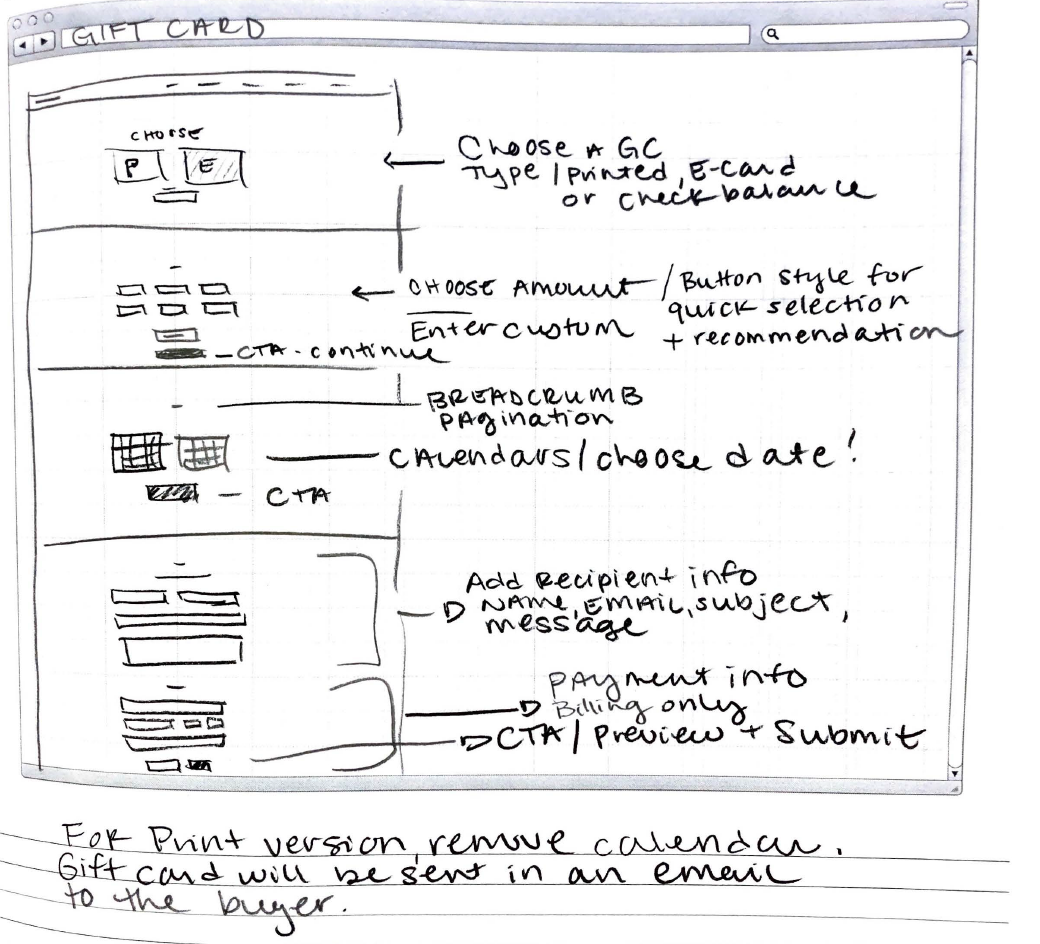 GIFT CARD
CHOOSE
P E
Choose A GC
Type / Printed, E-Card
or check balance
CHOOSE Amount / Button style for
quick selection
+ recommendation
Enter custom
- CTA - continue
BREADCRUMB
PAgination
CALendars / choose date!
- CTA
Add Recipient info
NAME, EMAIL, subject,
message
PAyment info
Billing only
CTA / Preview + Submit
FOR Print version, remove calendar.
Gift card will be sent in an email
to the buyer.